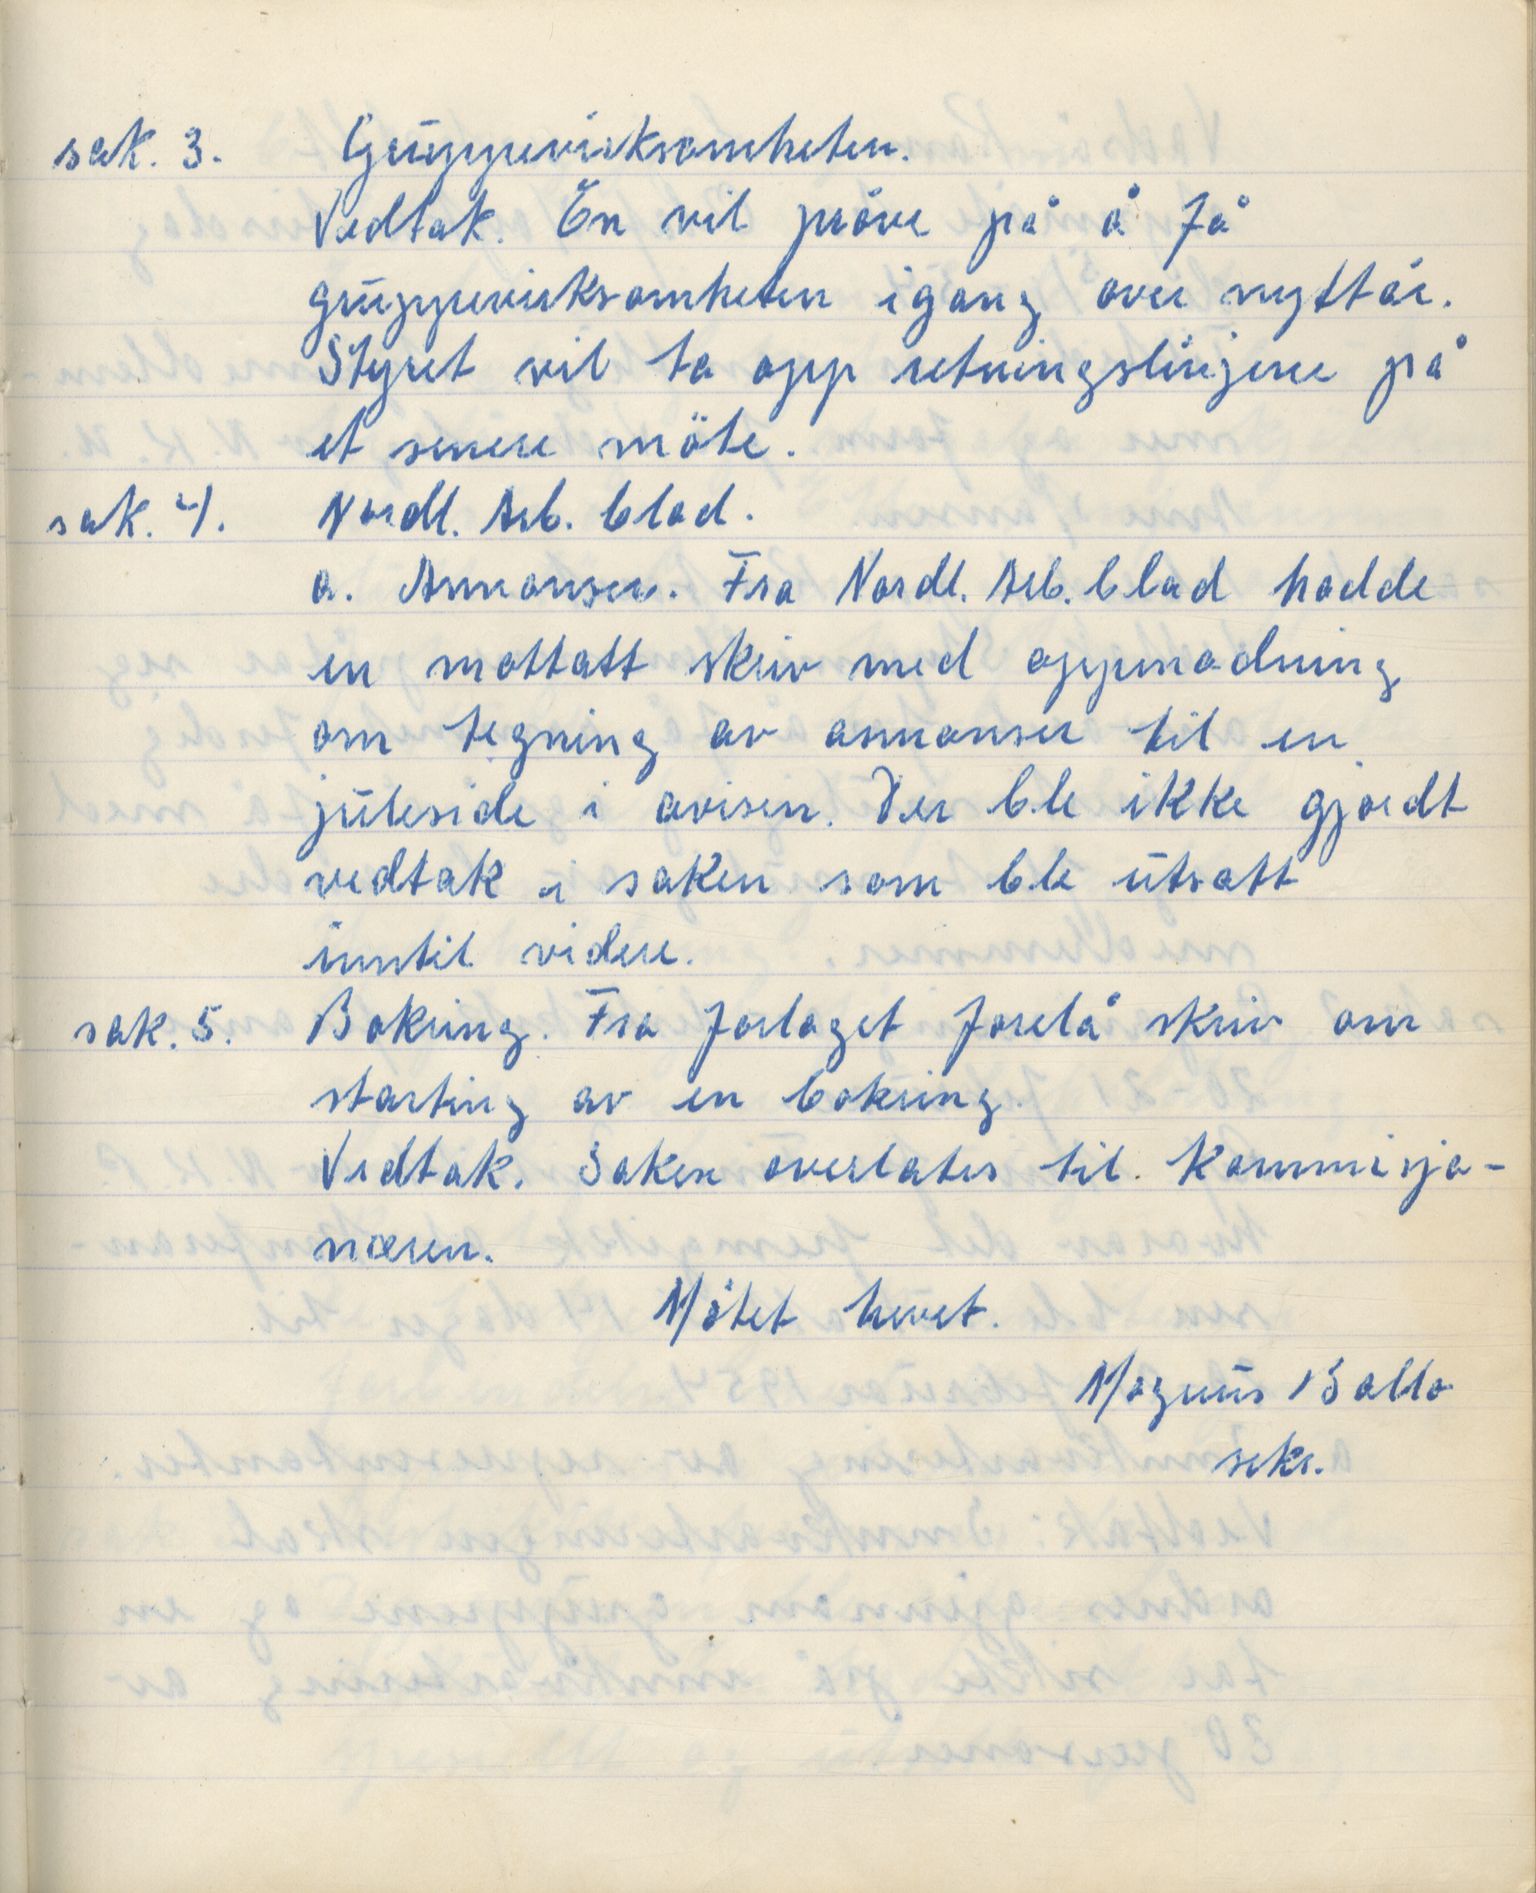 sak. 3. Gruppevirksomheten.
Vedtak. En vil pröve på å få
gruppevirksomheten igang over nyttår.
Styret vil ta opp retningslinjene på
et senere möte.
sak. 4. Nordl. Arb. blad.
a. Annonser. Fra Nordl. Arb. blad hadde
en mottatt skriv med oppmodning
om tegning av annonser til en
juleside i avisen. Der ble ikke gjordt
vedtak i saken som ble utsatt
inntil videre.
sak. 5. Bokring. Fra forlaget forelå skriv om
starting av en bokring.
Vedtak. Saken overlates til kommisjo-
næren.
Mötet hevet.
Magnus Balto
sekr.